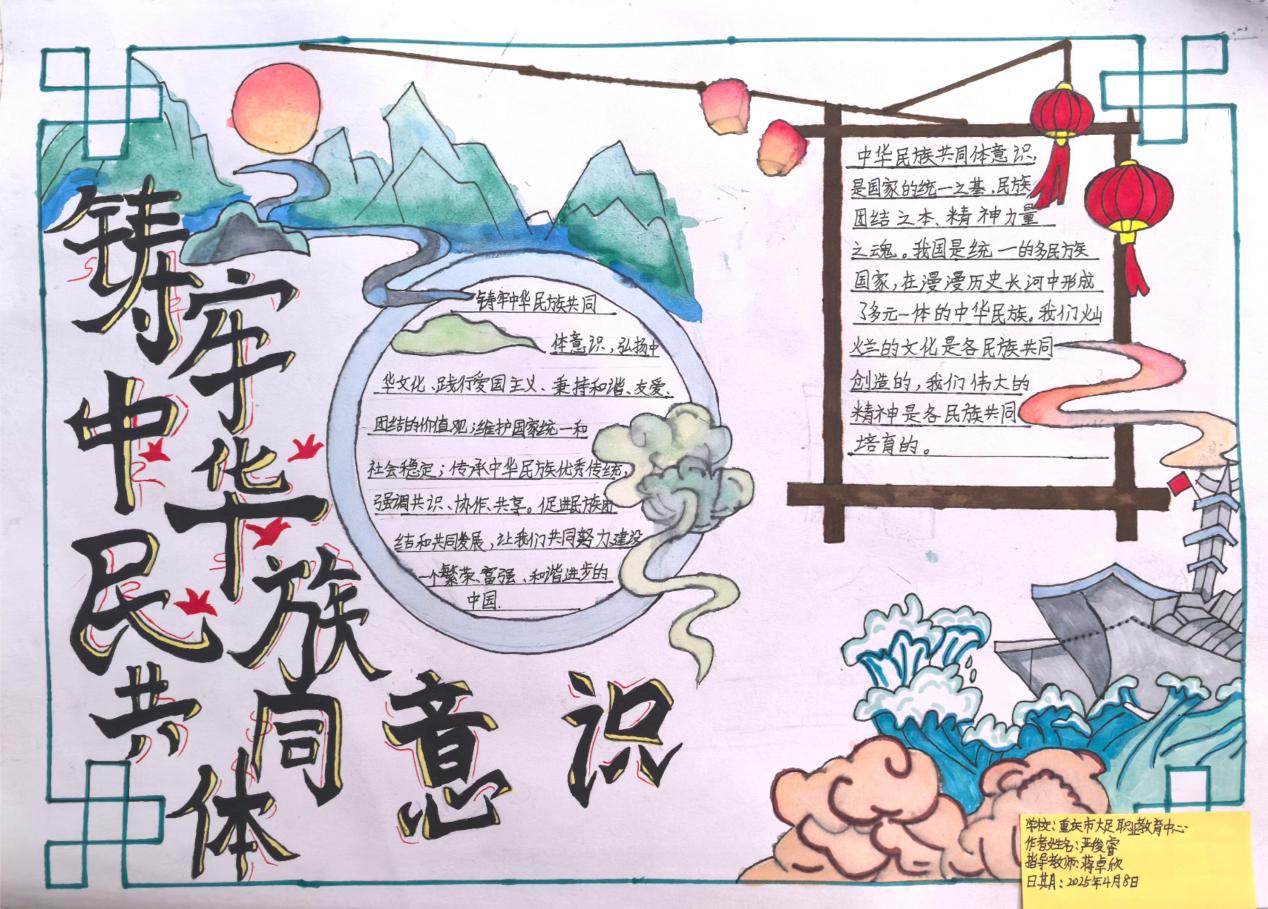 铸牢中华民族共同体意识
铸牢中华民族共同
体意识，弘扬中
华文化、践行爱国主义、秉持和谐、友爱、
团结的价值观；维护国家统一和
社会稳定；传承中华民族优秀传统，
强调共识、协作、共享。促进民族团
结和共同发展，让我们共同努力建设
一个繁荣、富强、和谐进步的
中国.
中华民族共同体意识，
是国家的统一之基、民族
团结之本、精神力量
之魂。我国是统一的多民族
国家，在漫漫历史长河中形成
了多元一体的中华民族。我们灿
烂的文化是各民族共同
创造的，我们伟大的
精神是各民族共同
培育的。
学校：重庆市大足职业教育中心
作者姓名：严俊睿
指导教师：蒋卓欣
日期：2025年4月8日